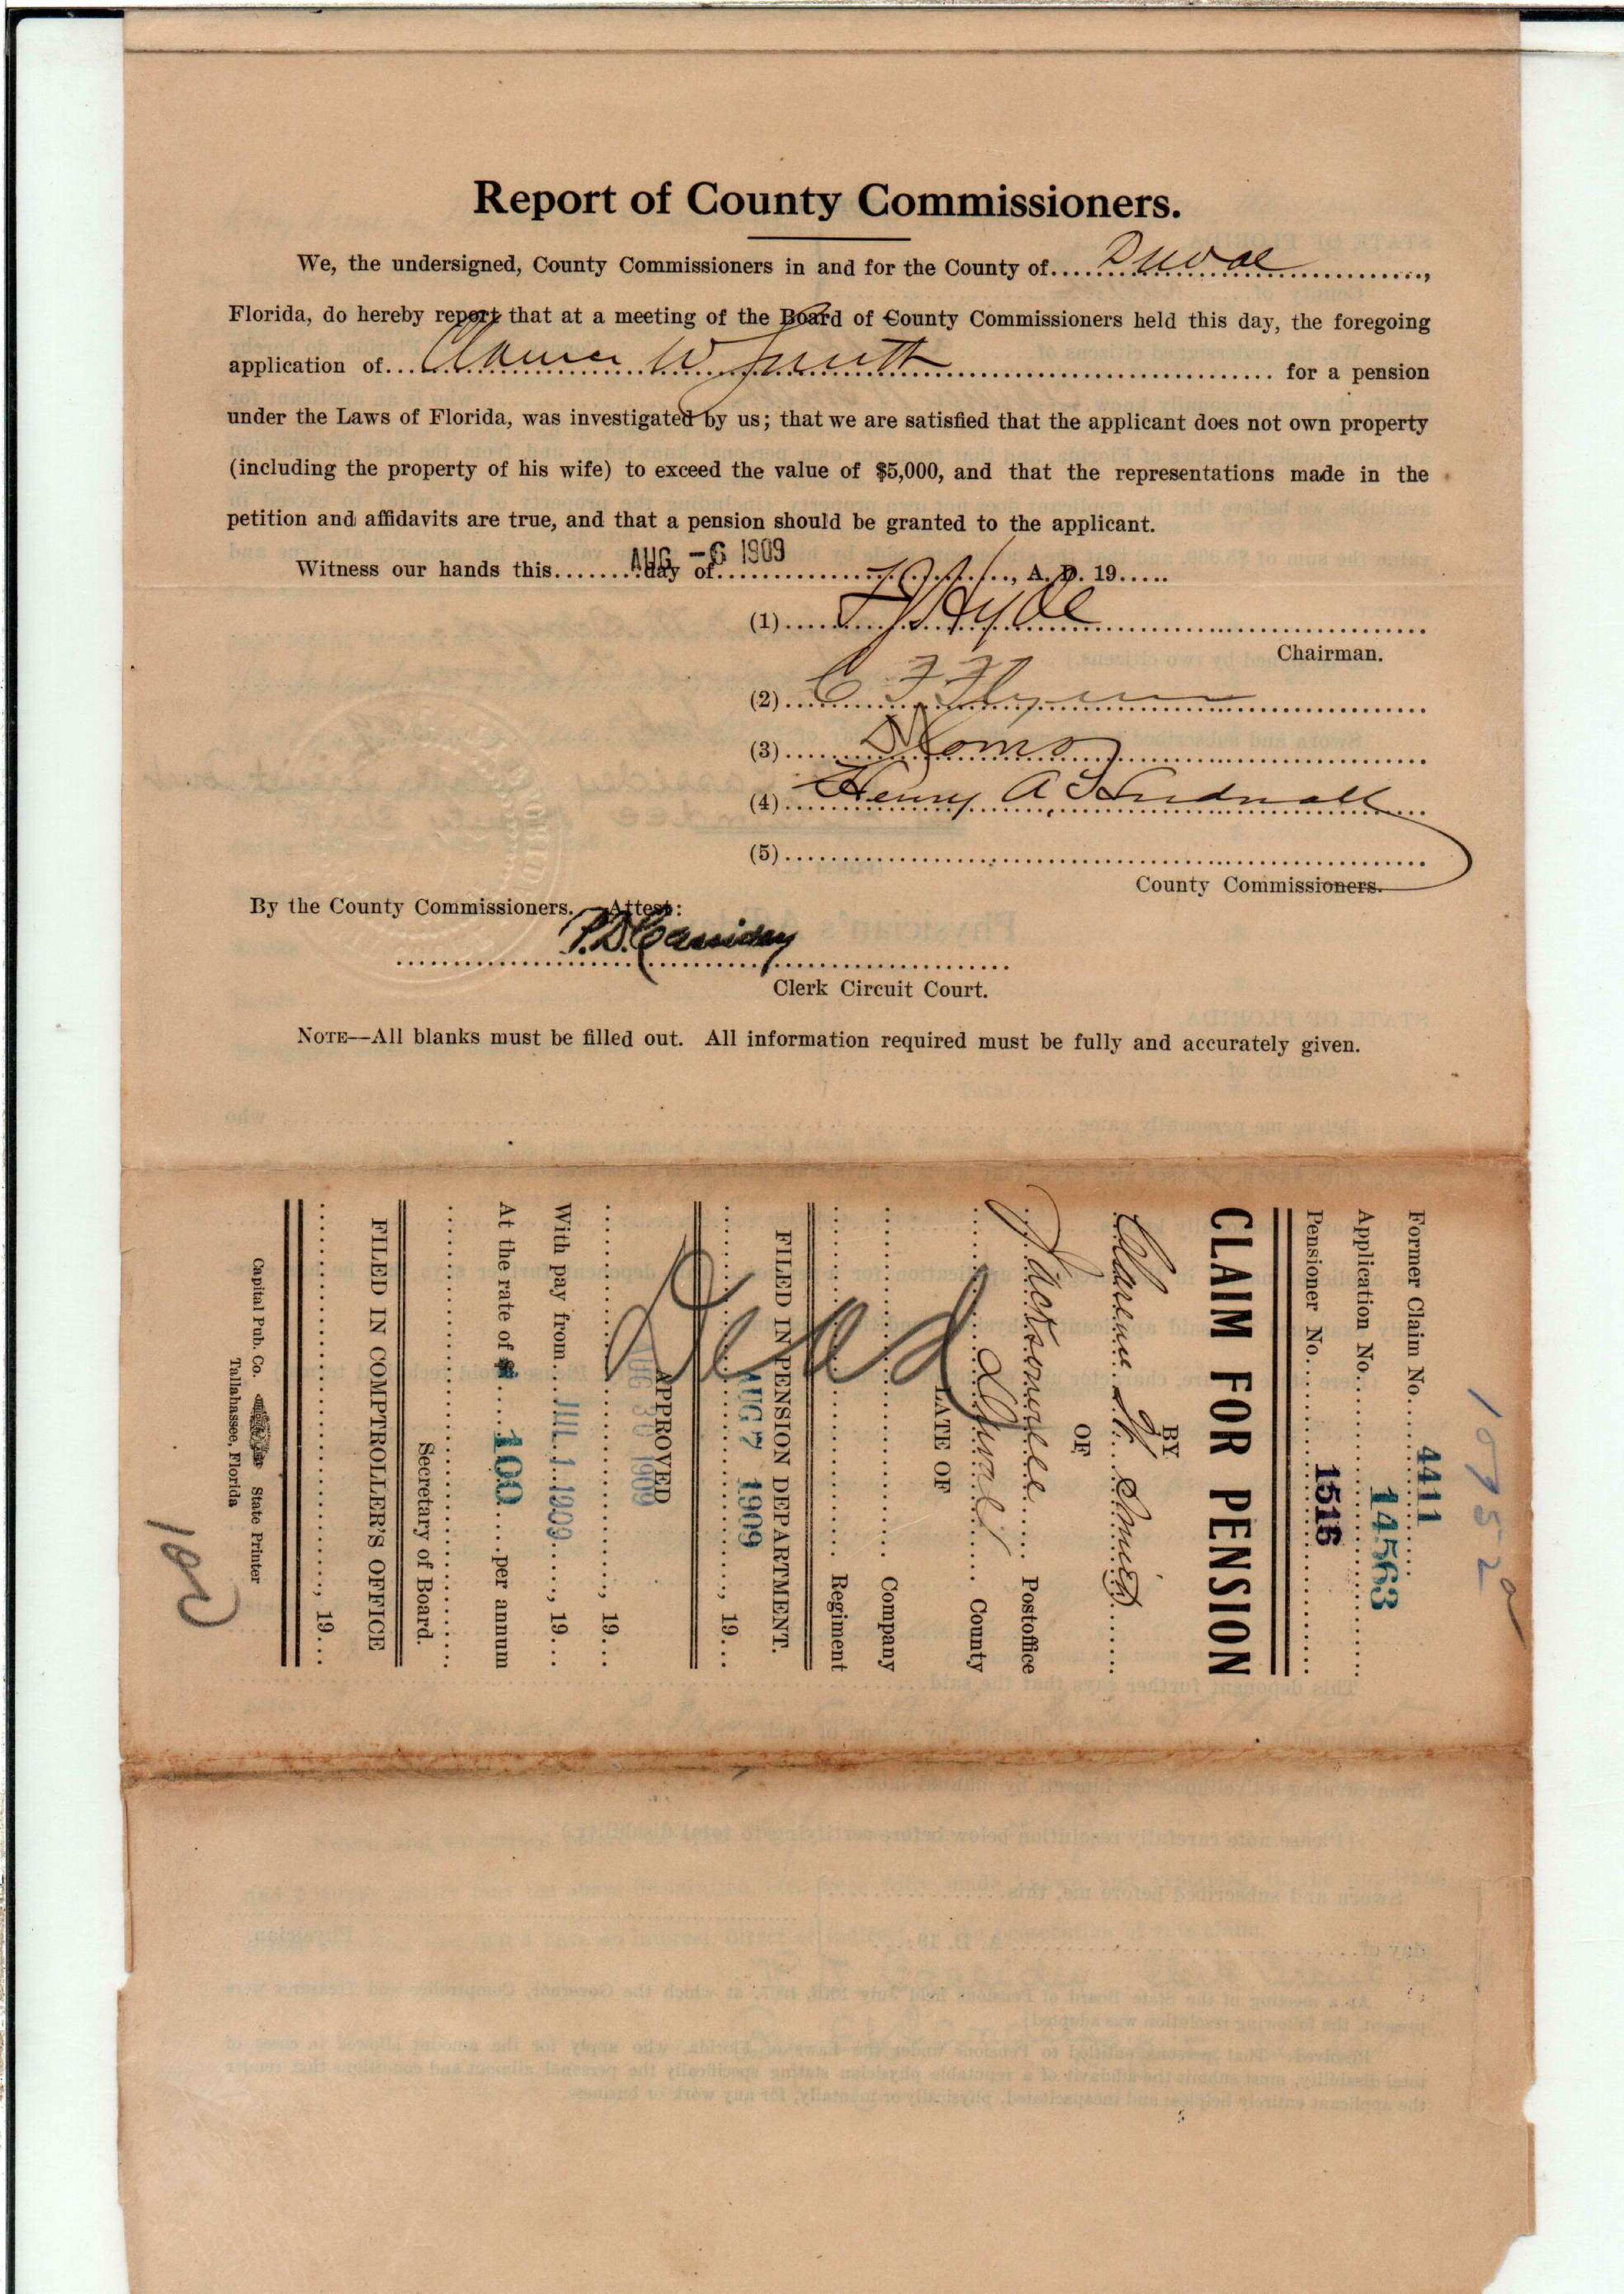 Report of County Commissioners.
We, the undersigned, County Commissioners in and for the County of....Duval....,
Florida, do hereby report that at a meeting of the Board of County Commissioners held this day, the foregoing
application of... W Smith ... for a pension
under the Laws of Florida, was investigated by us; that we are satisfied that the applicant does not own property
(including the property of his wife) to exceed the value of $5,000, and that the representations made in the
petition and affidavits are true, and that a pension should be granted to the applicant.
Witness our hands this.......day of................, A. D. 19.....
AUG -6 1909
(1)....Hyde....
Chairman.
(2)...C F Flynn....
(3)....
(4)...Henry A Hudnall....
(5)....
County Commissioners.
By the County Commissioners. Attest:
P.D. Cassidey
Clerk Circuit Court.
NOTE—All blanks must be filled out. All information required must be fully and accurately given.
10752
Former Claim No....4411....
Application No....14563....
Pensioner No....1515....
CLAIM FOR PENSION
BY
Clarence W. Smith
OF
Jacksonville.... Postoffice
Duval.... County
LATE OF
.... Company
.... Regiment
Dead
FILED IN PENSION DEPARTMENT.
AUG 7 1909...., 19...
APPROVED
AUG 30 1909
...., 19...
With pay from....JUL 1 1909...., 19...
At the rate of $....100....per annum
Secretary of Board.
FILED IN COMPTROLLER'S OFFICE
...., 19...
Capital Pub. Co. State Printer
Tallahassee, Florida